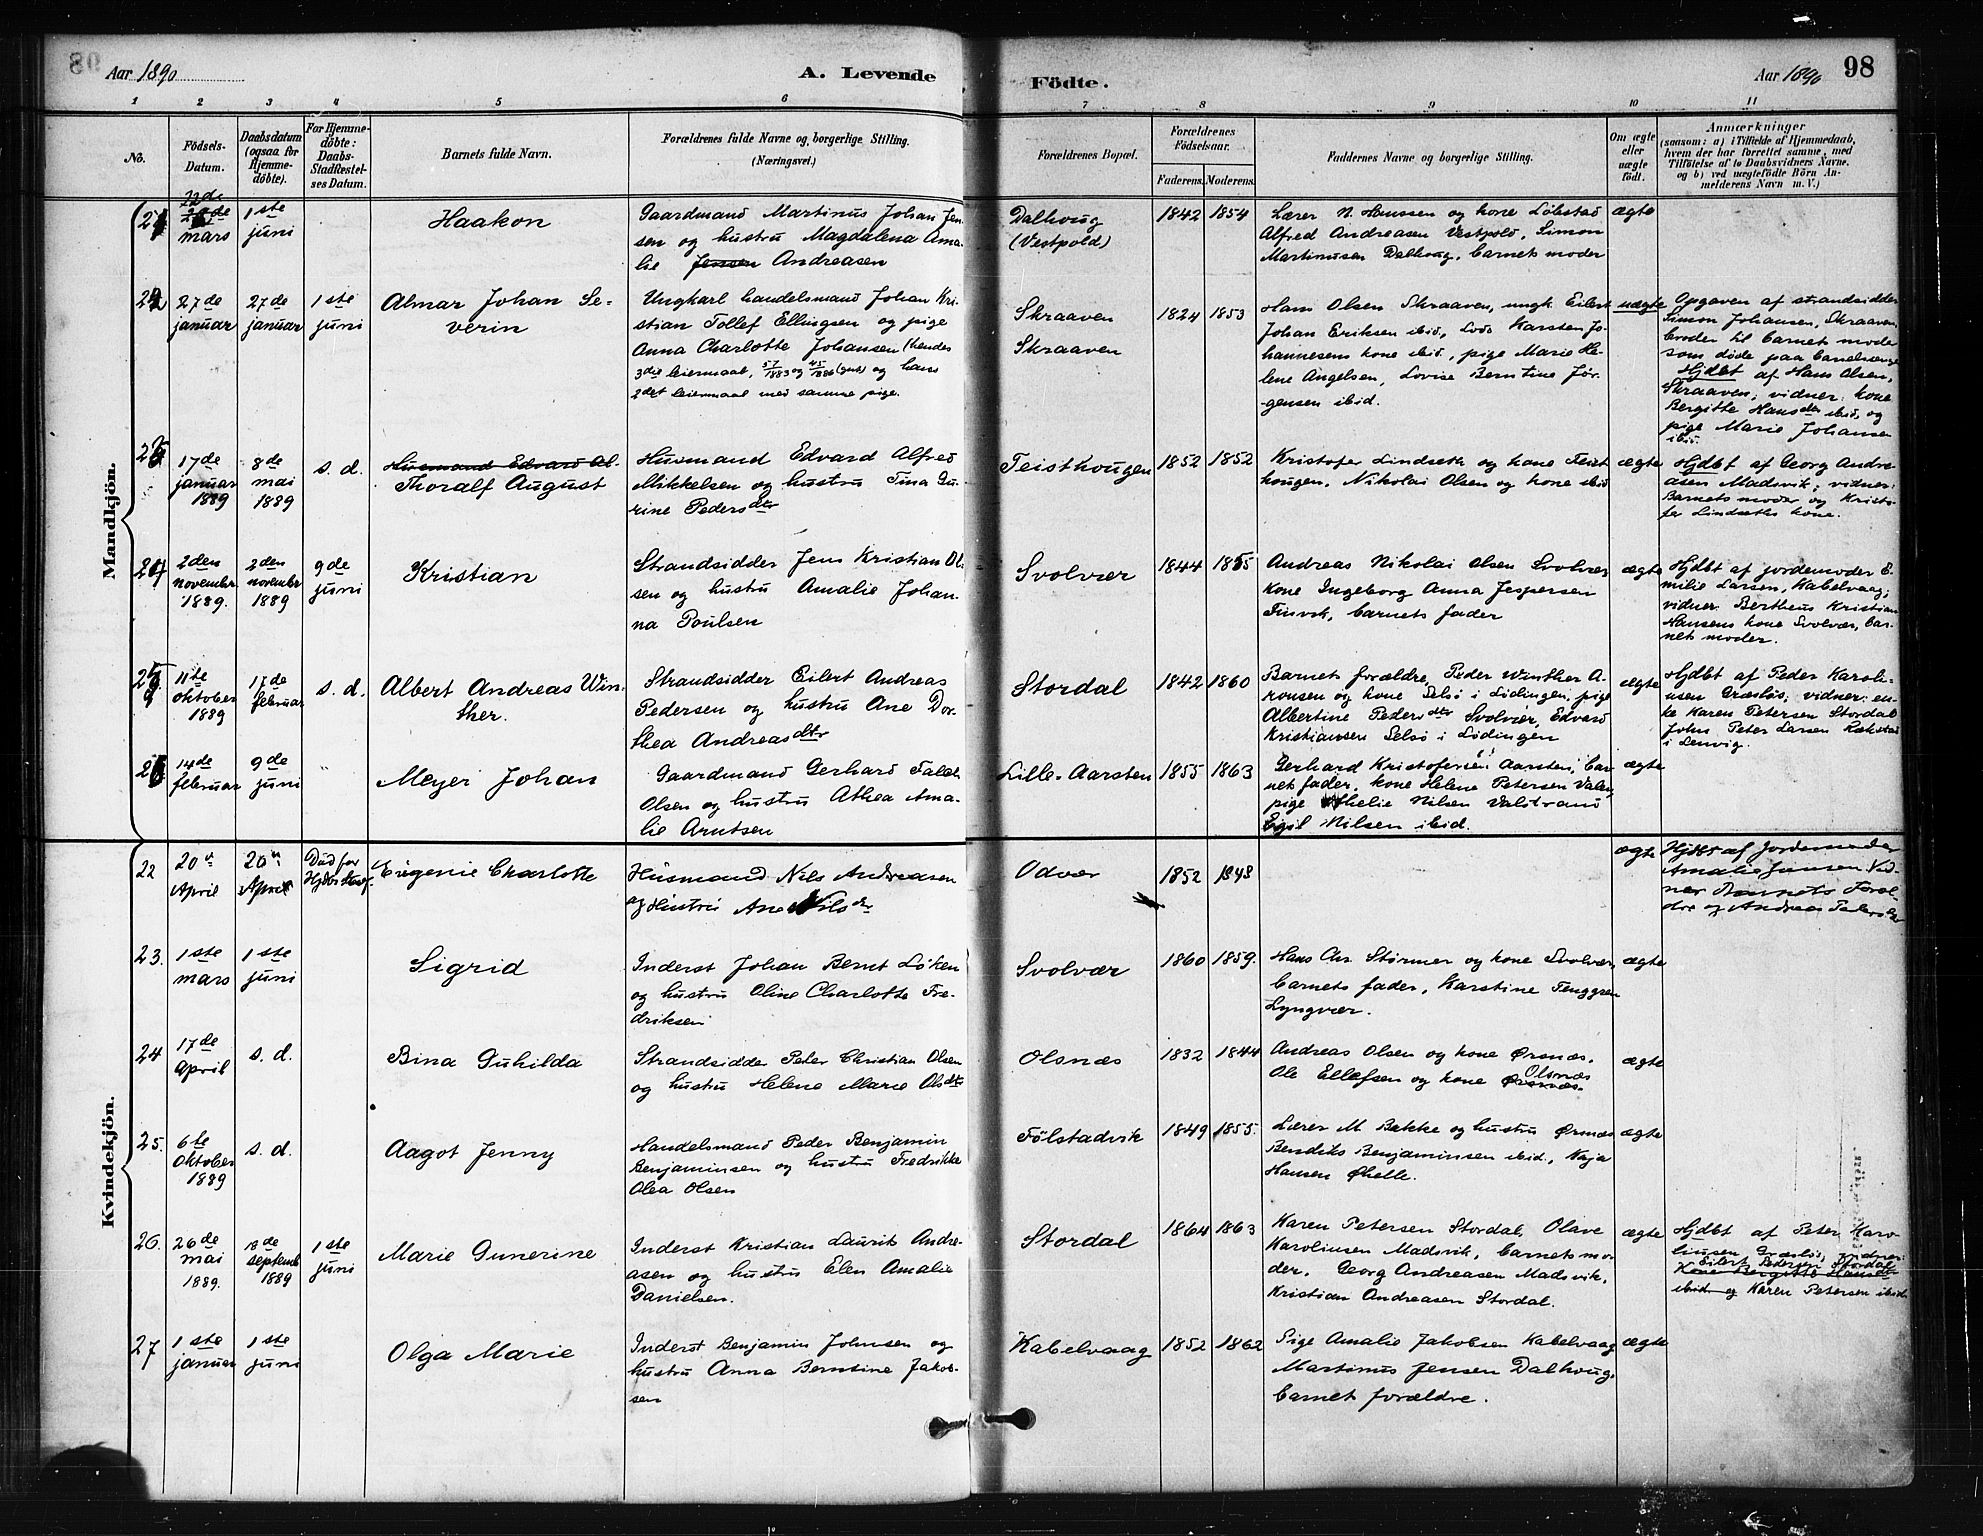 Aar 1890
A. Levende
Födte.
Aar 1890
98
1 2 3 4 5 6 7 8 9 10 11
No.
Födsels-
Datum.
Daabsdatum
(ogsaa for
Hjemme-
döbte).
For Hjemme-
döbte:
Daabs-
Stadfæstel-
ses Datum.
Barnets fulde Navn.
Forældrenes fulde Navne og borgerlige Stilling.
(Næringsvei.)
Forældrenes Bopæl.
Forældrenes
Födselsaar.
Faderens. Moderens.
Faddernes Navne og borgerlige Stilling.
Om ægte
eller
uægte
födt.
Anmærkninger
(saasom: a) i Tilfælde af Hjemmedaab,
hvem der har forrettet samme, med
Tilföielse af to Daabsvidners Navne.
og b) ved uægtefödte Börn An-
melderens Navn m. V.)
Mandkjön.
22de
mars
1ste
juni
Haakon
Gaardmand Martinus Johan Jen-
sen og hustru Magdalena Ama-
lie Jensen Andreasen
Dalhoug
(Vestpold)
1842 1854
Lærer N. Hanssen og kone Löbstad
Alfred Andreasen Vestpold, Simon
Martinusen Dalhoug, barnets moder
ægte
27de
januar
27de
januar
1ste
juni
Almar Johan Se-
verin
Ungkarl handelsmand Johan Kri-
stian Tollef Ellingsen og pige
Anna Charlotte Johansen (hendes
3die leiermaal, og hans
2det leiermaal med samme pige.
Skraaven
Skraaven
1824 1853
Hans Olsen Skraaven, ungk. Eilert
Johan Eriksen ibid, Lods Karsten Jo-
hannesens kone ibid, pige Marie He-
lene Angelsen, Lovise Berntine Jør-
gensen ibid.
uægte
Opgaven af strandsidder
Simon Johansen, Skraaven,
broder til barnets moder
som døde paa barselsenge
Hjdbt af Hans Olsen,
Skraaven; vidner: kone
Bergitte Hansdtr ibid, og
pige Marie Johansen
ibid.
17de
januar
1889
8de
mai
1889
s. d.
Husmand Edvard Al-
Thoralf August
Husmand Edvard Alfred
Mikkelsen og hustru Tina Gu-
rine Pedersdtr
Teisthougen
1852 1852
Kristofer Lindseth og kone Teist
hougen, Nikolai Olsen og kone ibid
ægte
Hjdbt af Georg Andre-
asen Madsvik; vidner:
Barnets moder og Kristo-
fer Lindseths kone.
2den
november
1889.
2den
november
1889
9de
juni
Kristian
Strandsidder Jens Kristian Ol-
sen og hustru Amalie Johan-
na Poulsen
Svolvær
1844 1855
Andreas Nikolai Olsen Svolvær
kone Ingeborg Anna Jespersen
Finvik, barnets fader
ægte
Hjdbt af jordemoder E-
milie Larsen, Kabelvaag;
vidner: Bertheus Kristian
Hansens kone Svolvær, bar-
nets moder.
11te
oktober
1889
17de
februar
s. d.
Albert Andreas Win-
ther.
Strandsidder Eilert Andreas
Pedersen og hustru Ane Dor-
thea Andreasdtr
Stordal
1842 1860
Barnets forældre, Peder Winther A-
ronsen og kone Selsø i Lødingen, pige
Albertine Pedersdtr Svolvær, Edvard
Kristiansen Selsø i Lødingen
ægte
Hjdbt af Peder Karoli-
usen Græslös; vidner: en-
ke Karen Petersen Stordal
John Peter Larsen
i Lenvig.
14de
februar
9de
juni
Meyer Johan
Gaardmand Gerhard Falck
Olsen og hustru Athea Ama-
lie Arntsen
Lille-Aarsten
1855 1863
Gerhard Kristofersen Aarsten, bar-
net fader, kone Helene Petersen Valen,
pige Nilsen Valstrand
Egil Nilsen ibid.
ægte
Kvindekjön.
22
20
April
20
April
Död for
Hjdbs Stadf.
Eugenie Charlotte
Husmand Nils Andreasen
og Hustru Ane Nilsdtr
Odvær
1852 1848
ægte
Hjdbt af Jordemoder
Amalie Jensen Vid-
ner Barnets Foræl-
dre og Andreas
23.
1ste
mars
1ste
juni
Sigrid
Inderst Johan Bernt Løken
og hustru Oline Charlotte Fre-
driksen
Svolvær
1860 1859.
Hans An. Størmer og kone Svolvær,
barnets fader, Karstine Tenggren
Lyngvær.
ægte
24
17de
April
s. d.
Bina Guhilda
Strandsidder Peter Christian Olsen
og hustru Helene Marie Olsdtr
Olsnæs
1832 1844
Andreas Olsen og kone Ørsnæs.
Ole Ellefsen og kone Ørsnæs. Olsnæs
ægte
25.
6te
oktober
1889
s. d.
Aagot Jenny
Handelsmand Peder Benjamin
Benjaminsen og hustru Fredrikke
Olea Olsen
Følstadvik
1849 1855.
Lærer M. Bekke og hustru Ørsnæs
Bendiks Benjaminsen ibid., Kaja
Hansen Øhelle.
ægte
26.
26de
mai
1889.
18de
septemb
1889
1ste
juni
Marie Gunerine
Inderst Kristian Laurits Andre-
asen og hustru Elen Amalie
Danielsen.
Stordal
1864 1863
Karen Petersen Stordal, Olave
Karoliusen Madsvik, barnets mo-
der, Georg Andreasen Madsvik,
Kristian Andreasen Stordal.
ægte
Hjdbt af Peter Karo-
liusen Græslös, vidner:
Eilert Petersen Stordal
Kone Bergitte Hansdtr
ibid og Karen Petersen ibid
27
1ste
januar
1ste
juni
Olga Marie
Inderst Benjamin Johnsen og
hustru Anna Berntine Jakob-
sen
Kabelvaag
1852 1862
Pige Amalie Jakobsen Kabelvaag
Martinus Jensen Dalhoug,
barnets forældre.
ægte